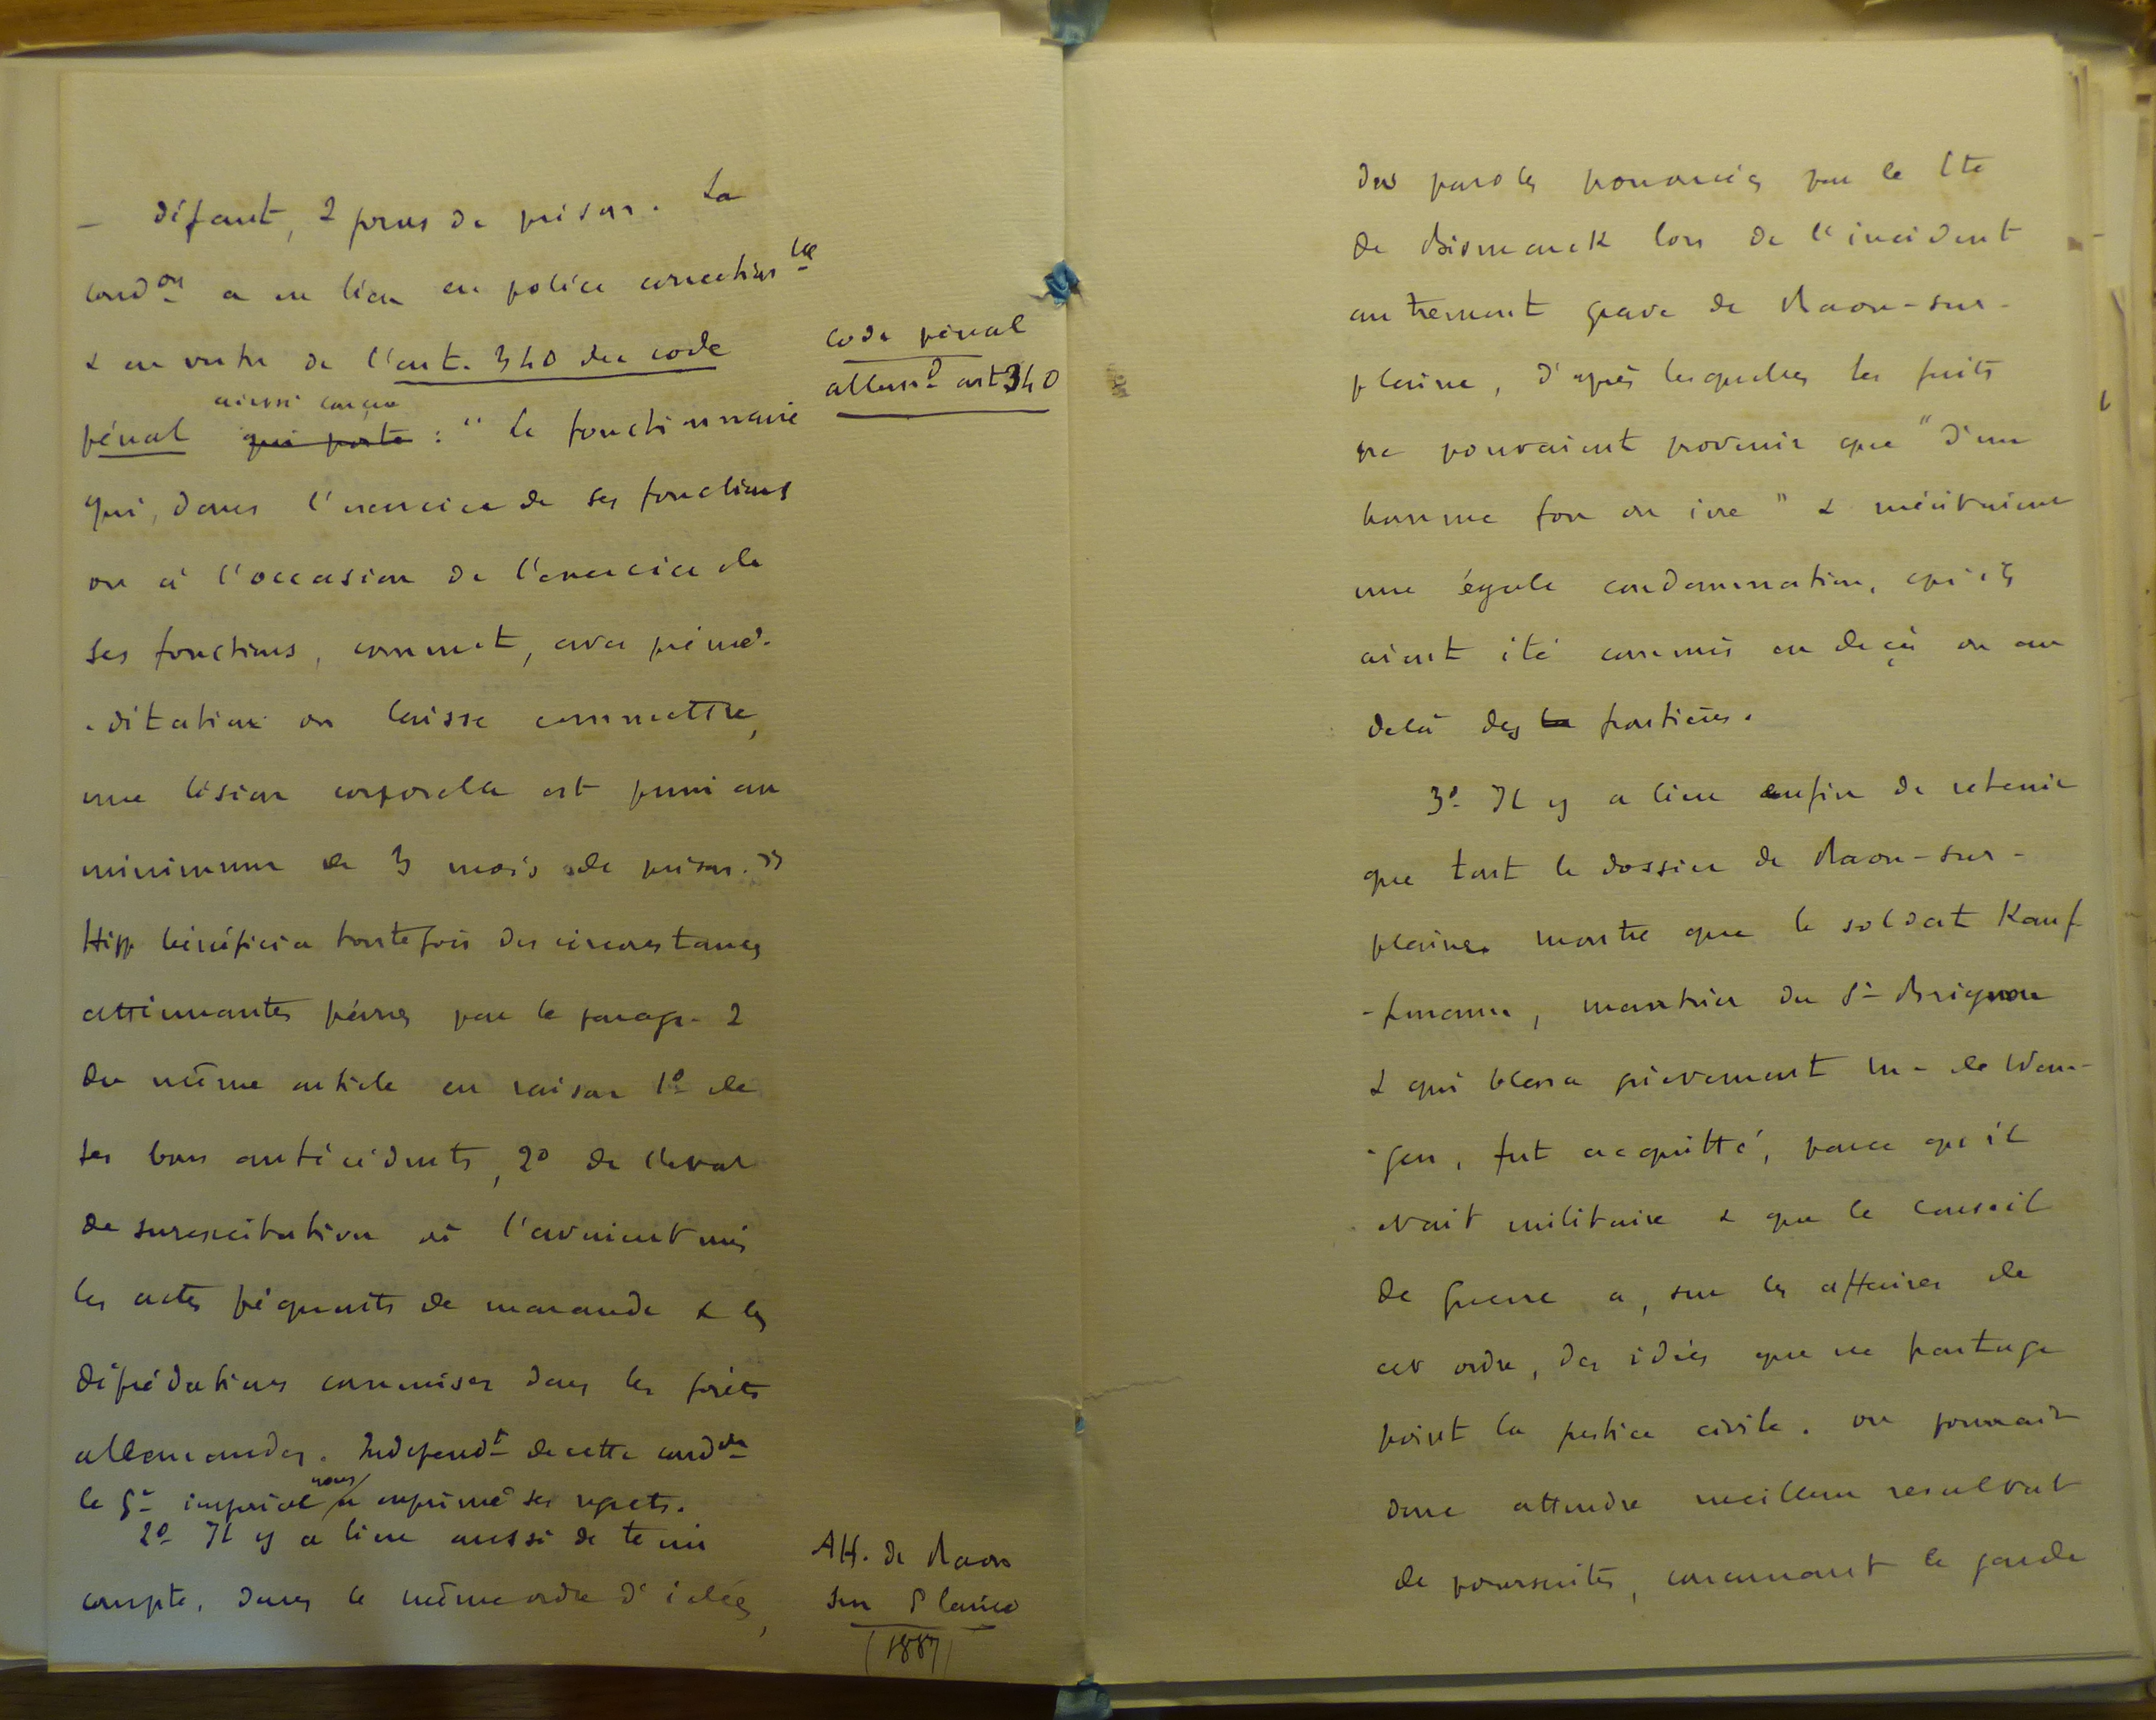 — défaut, 2 jours de prison. La
cond.on a eu lieu en police correction.lle
& en vertu de l'art. 340 du code
pénal ainsi conçu qui porte : " Le fonctionnaire
qui, dans l'exercice de ses fonctions
ou à l'occasion de l'exercice de
ses fonctions, commet, avec prémé-
-ditation ou laisse commettre,
une lésion corporelle est puni au
minimum de 3 mois de prison. "
Hipp bénéficia toutefois des circonstances
atténuantes prévues par le paragr. 2
du même article en raison 1º de
ses bons antécédents, 2º de l'état
de surexcitation où l'avaient mis
les actes fréquents de maraude & les
déprédations commises dans les forêts
allemandes. Independ.t de cette cond.on
le G.t impérial nous a exprimé ses regrets.
2º Il y a lieu aussi de tenir
compte, dans le même ordre d'idées,
Code pénal
allem.d art 340
Aff. de Raon
sur Plaine
(1887)
des paroles prononcées par le Cte
de Bismarck lors de l'incident
autrement grave de Raon-sur-
plaine, d'après lesquelles les faits
ne pouvaient provenir que " d'un
homme fou ou ivre " & méritaient
une égale condamnation, qu'ils
aient été commis en deçà ou au
delà des la frontières.
3º Il y a lieu enfin de retenir
que tout le dossier de Raon-sur-
plaine montre que le soldat Kauf
-fmann, meurtrier du Sr Brignon
& qui blessa grièvement M. de Wan-
-gen, fut acquitté, parce qu'il
était militaire & que le Conseil
de Guerre a, sur les affaires de
cet ordre, des idées que ne partage
point la justice civile. On pourrait
donc attendre meilleur resultat
de poursuites, concernant le garde